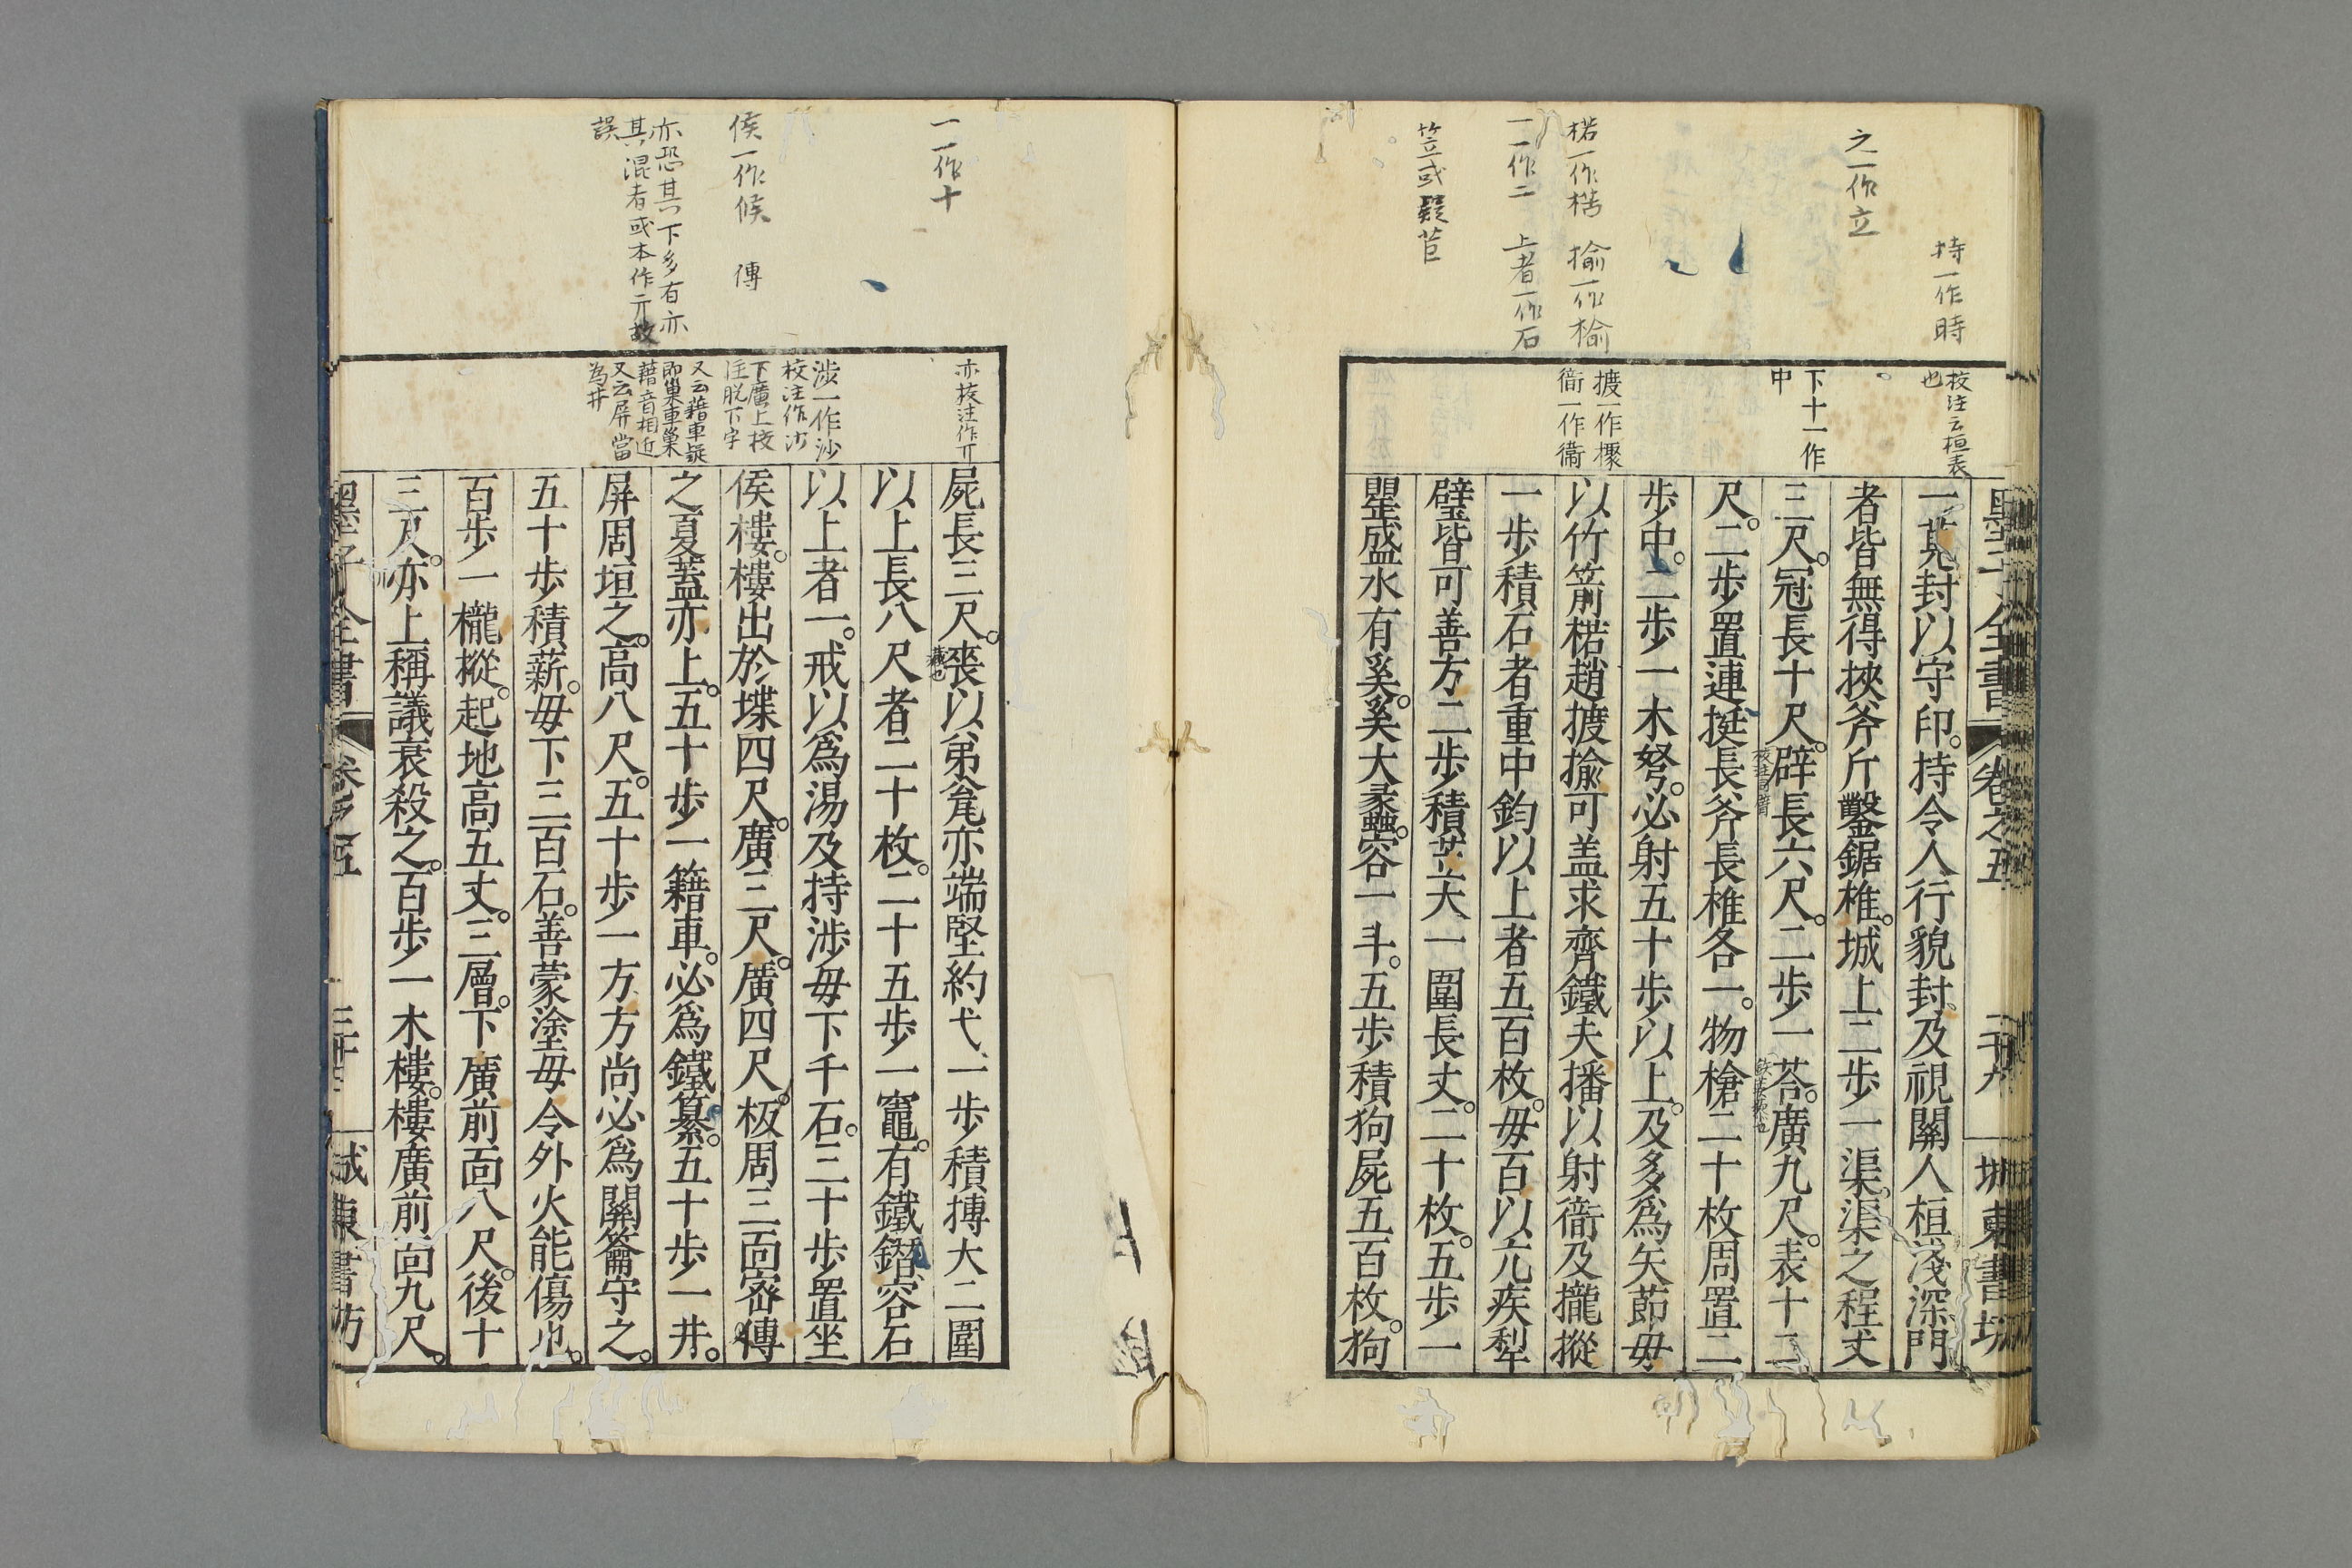 持一作時
之一作立
楉一作㯥 揄一作榆
一一作二 上者一作石
笠或疑苣
校注云桓表
也
下十一作
中
摭一作㯲
衕一作衞
墨子全書 卷之五 城東書坊
一莧封以守印。持令人行貌封、及視關人桓淺深門
者皆無得挾斧斤鑿鋸椎。城上二步一渠。渠之程丈
三尺。冠長十尺。辟長六尺。二步一荅。廣九尺。表十二
尺。二步置連挺長斧長椎各一。物槍二十枚周置二
步中。二步一木弩。必射五十步以上。及多爲矢節毋
以竹箭楉趙摭揄可盖求齊鐵夫播以射衕及攏摐
一步積石者重中鈞以上者五百枚。毋百以亢疾犁
壁皆可善方二步積苙大一圍長丈。二十枚。五步一
罌盛水有奚。奚大蠡容一斗。五步積狗屍五百枚。狗
一一作十
侯一作候 傳
亦恐其下多有亦
其混者或本作亓故
誤
亦校注作丌
涉一作沙
校注作沙
下廣上校
注脱下字
又云藉車疑
即巢車巢
藉音相近
又云屏當
為井
屍長三尺。喪以弟瓮亦端堅約弋、一步積搏大二圍
藏也
以上長八尺者二十枚。二十五步一竈。有鐵鐕容石
以上者一。戒以爲湯及持涉毋下千石。三十步置坐
侯樓。樓出於堞四尺。廣三尺。廣四尺。板周三面密傅
之夏蓋亦上。五十步一籍車。必爲鐵纂。五十步一井。
屏周垣之。高八尺。五十步一方方尚必爲關籥守之。
五十步積薪。毋下三百石。善蒙塗毋令外火能傷也。
百步一櫳樅。起地高五丈。三層。下廣前面八尺。後十
三尺。亦上稱議衰殺之。百步一木樓。樓廣前面九尺。
墨子全書 卷之五 城東書坊